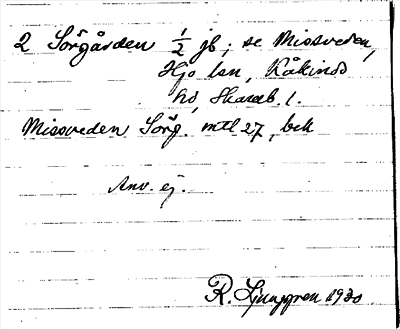 2 Sörgården 1/2 jb; se Missveden,
Hjo lsn, Kåkinds
hd, Skarab. l.
Missveden Sörg. mtl 27, bek
Anv. ej.
R. Ljunggren 1930